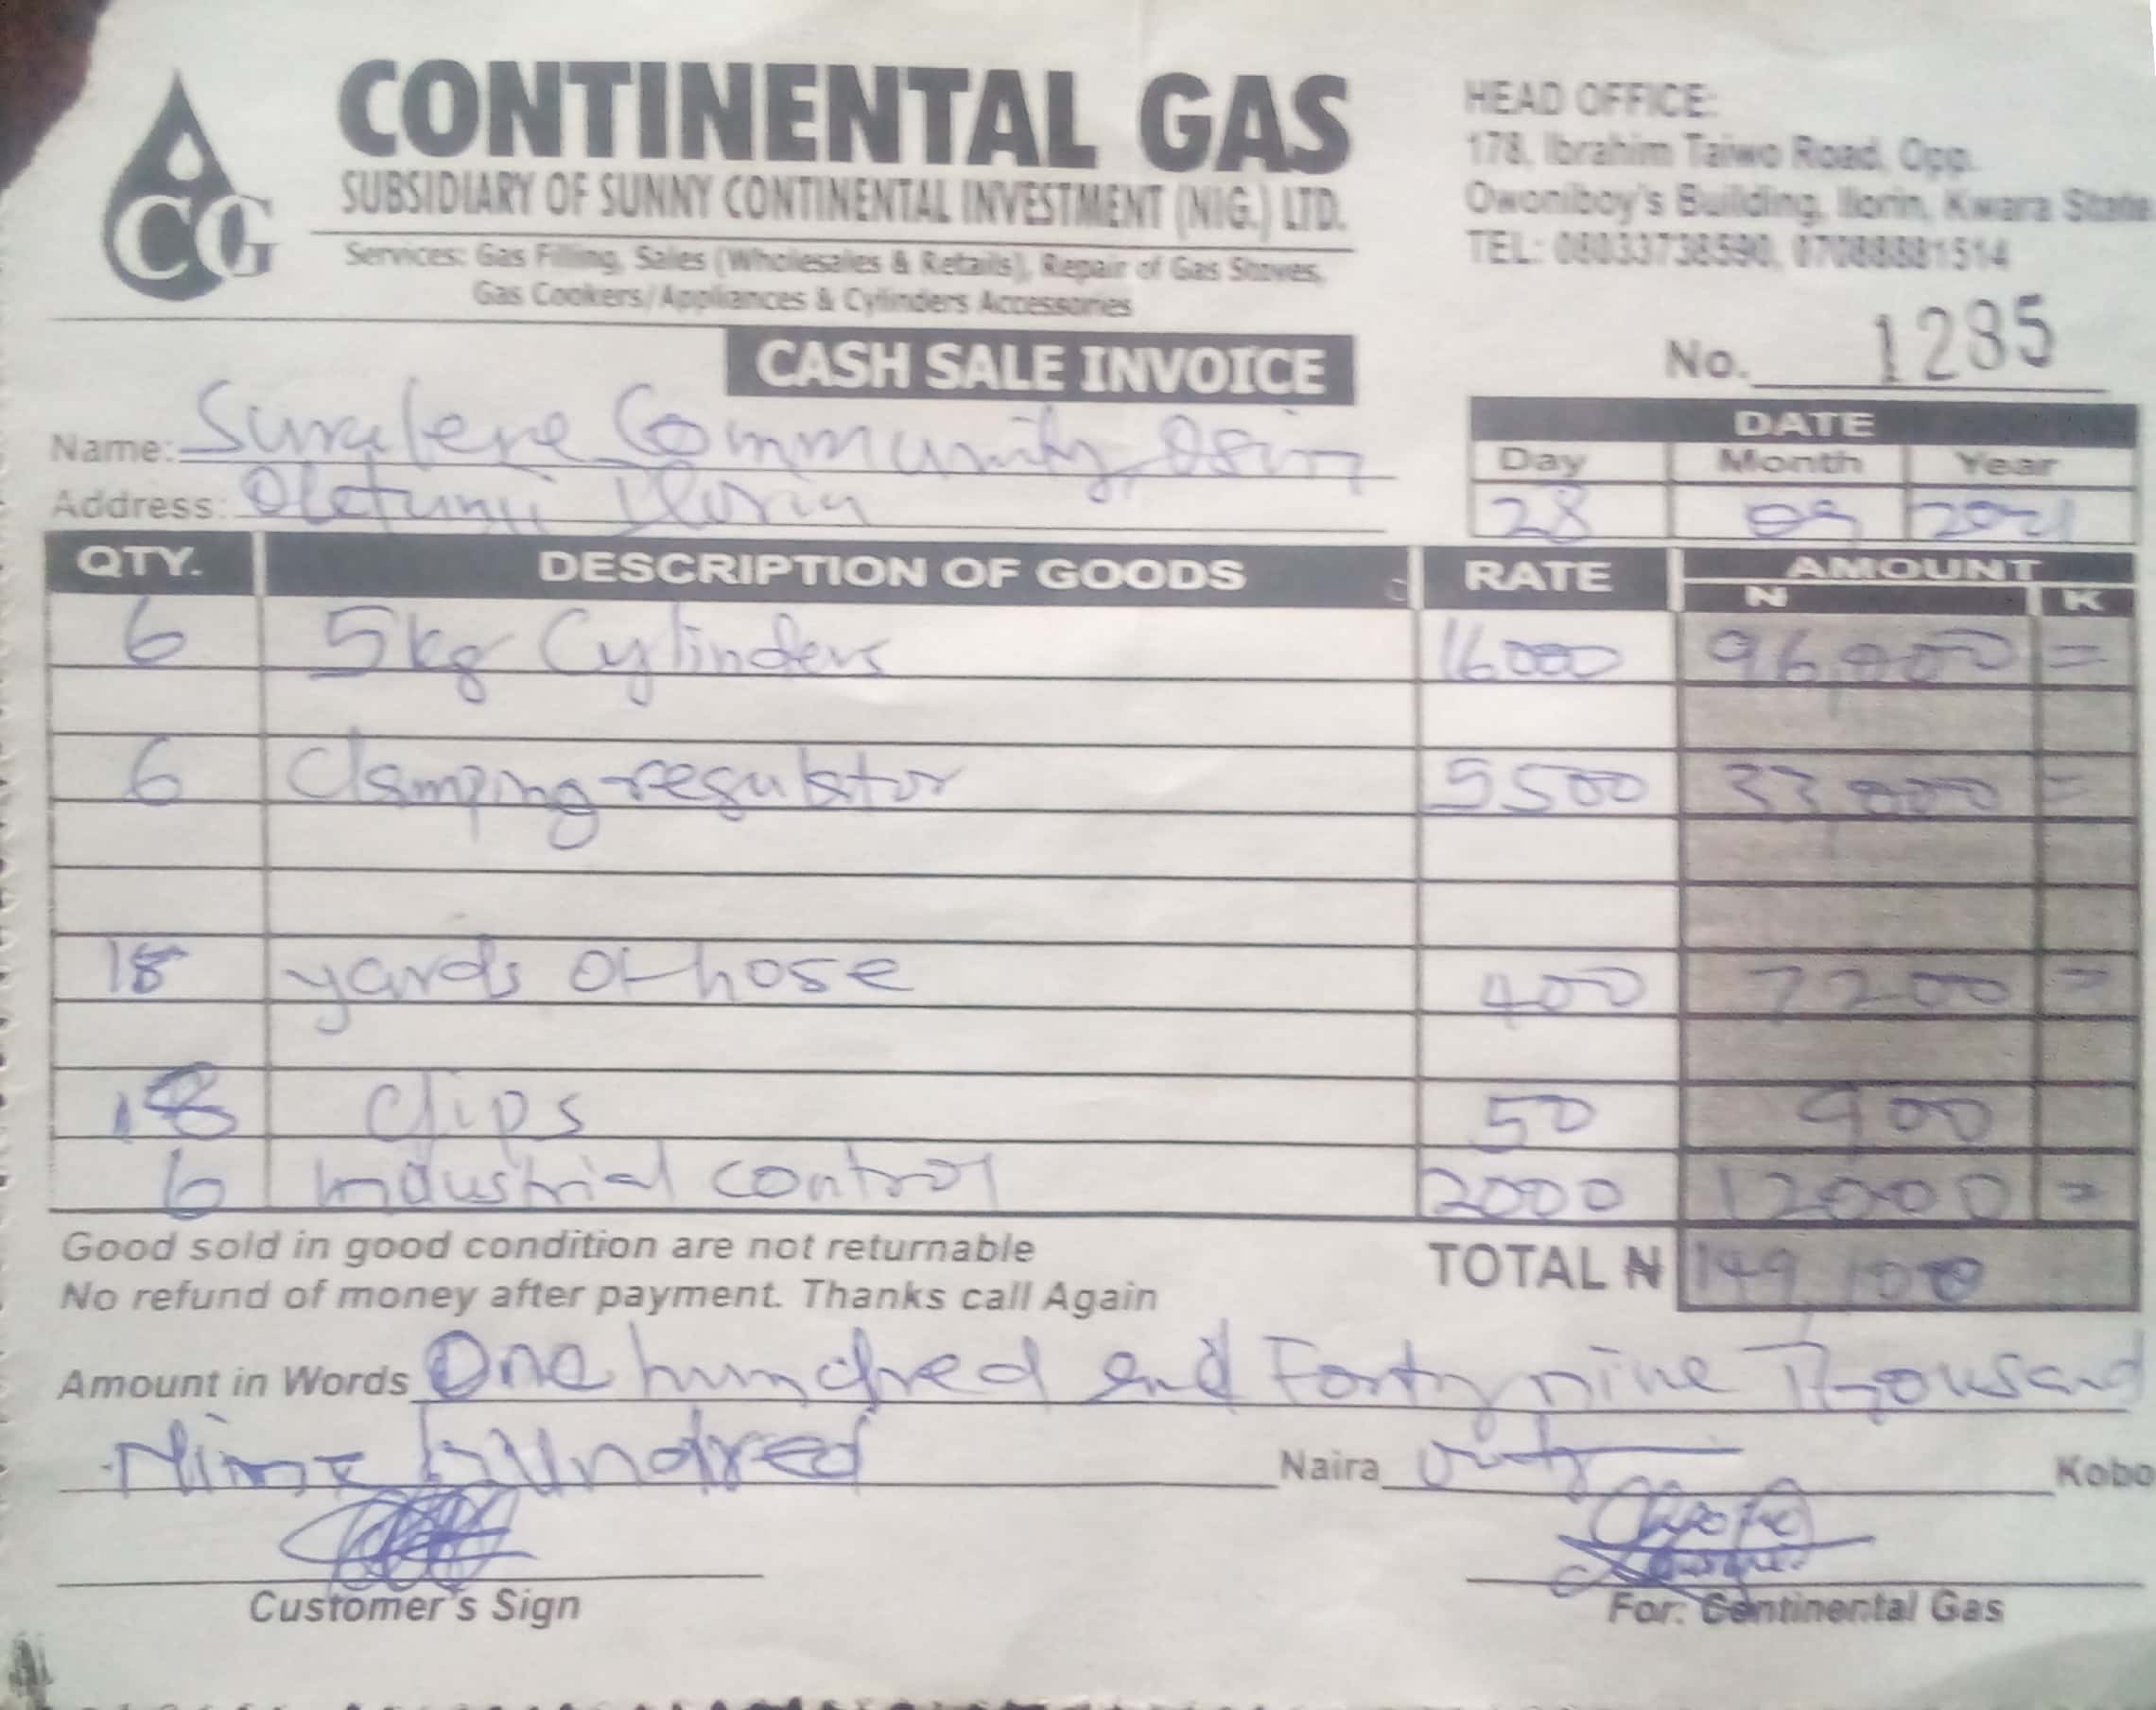 CG
CONTINENTAL GAS
SUBSIDIARY OF SUNNY CONTINENTAL INVESTMENT (NIG.) LTD.
Services: Gas Filling, Sales (Wholesales & Retails), Repair of Gas Stoves,
Gas Cookers/Appliances & Cylinders Accessories
HEAD OFFICE:
178, Ibrahim Taiwo Road, Opp.
Owoniboy's Building, Ilorin, Kwara State
TEL: 08033738590, 07088881514
CASH SALE INVOICE
No. 1285
Name: Surulere Community, Osin
Address: Ilorin
DATE
Day Month Year
28 09 2021
QTY. DESCRIPTION OF GOODS RATE AMOUNT
N K
6 5kg Cylinders 16000 96,000 =
6 Clamping regulator 5500 33,000 =
18 yards of hose 400 7200 =
18 Clips 50 900
6 Industrial control 2000 12000 =
Good sold in good condition are not returnable
TOTAL ₦ 149,100
No refund of money after payment. Thanks call Again
Amount in Words One hundred and Forty nine Thousand
Nine hundred Naira Kobo
Customer's Sign
For: Continental Gas